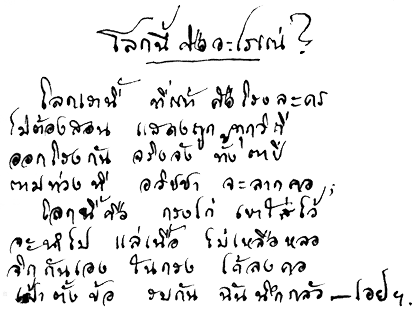 โลกนี้ คือ อะไรแน่ ?
โลกเรานี้ ที่แท้ คือ โรงละคร
ไม่ต้องสอน แสดงถูก ทุกวิถี
ออกโรงกัน จริงจัง ทั้งตาปี
ตามท่วงที อวิชชา จะลากคอ ;
โลกนี้คือ กรงไก่ เขาใส่ไว้
จะนำไป แล่เนื้อ ไม่เหลือหลอ
จิกกันเอง ในกรง ได้ลงคอ
เฝ้าตั้งข้อ รบกัน ฉันนึกกลัว — เอย ฯ.